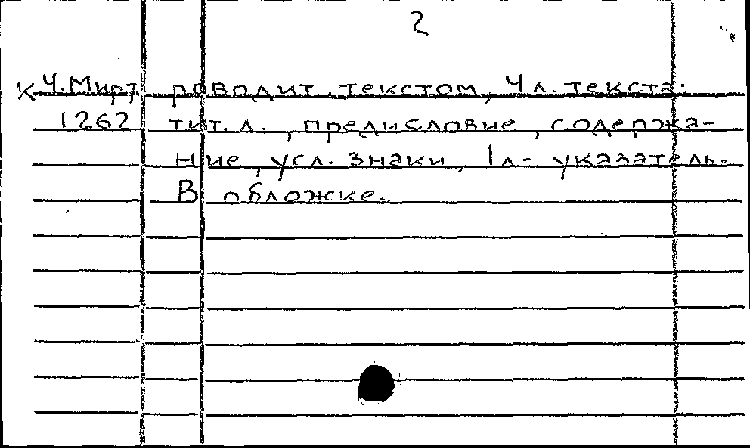 2
К Ч.Мирт роводит. текстом, 4 л. текста:
1262 тит. л., предисловие, содержа-
ние, усл. знаки, 1 л- указатель.
В обложке.